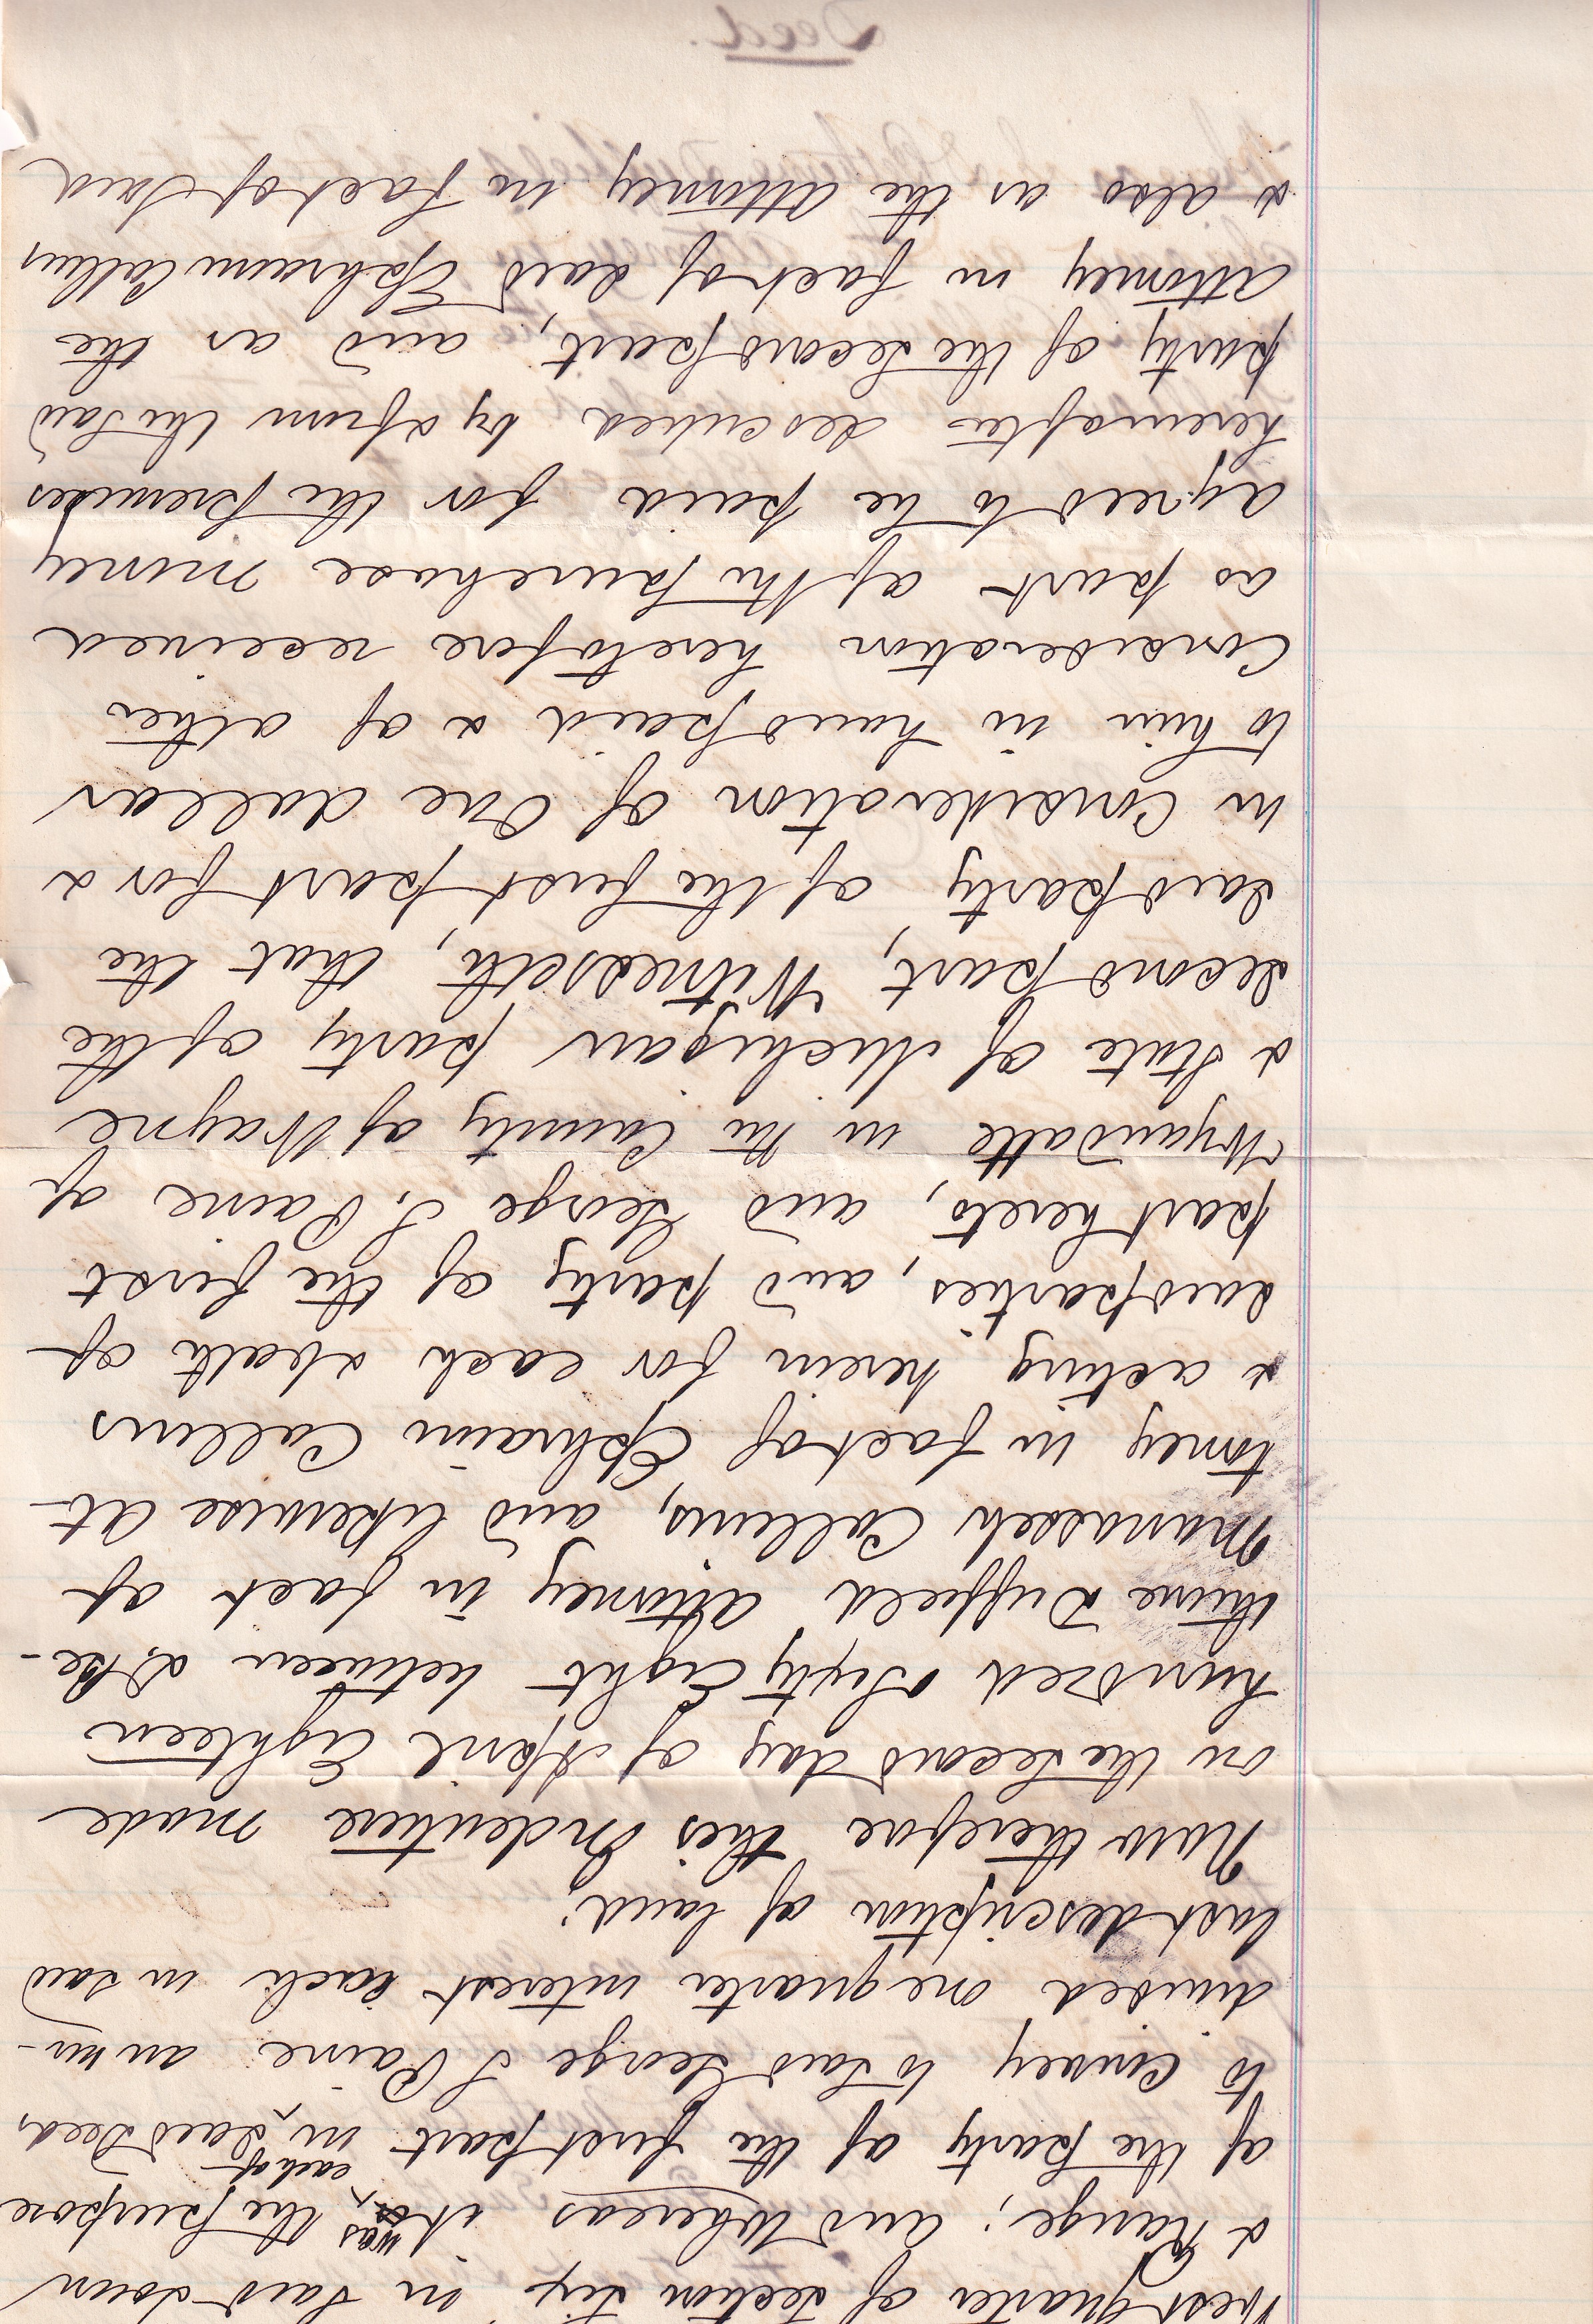 West quarter of section six in said town
& Range; and Whereas it was the purpose
of the party of the first part in each of said Deeds
to convey to said George S Paine an un-
divided one quarter interest each in said
last description of land;
Now therefore this Indenture made
on the second day of April Eighteen
hundred & Sixty Eight between D. Be-
thune Duffield attorney in fact of
Manasseh Collins, and likewise At-
torney in fact of Ephraim Collins
& acting herein for each & both of
said parties, and party of the first
part hereto, and George S. Paine of
Wyandotte in the County of Wayne
& State of Michigan party of the
second part, Witnesseth, that the
said party of the first part for &
in Consideration of One dollar
to him in hand paid & of other
Consideration heretofore received
as part of the purchase money
agreed to be paid for the premises
hereinafter described by & from the said
party of the second part, and as the
Attorney in fact of said Ephraim Collins
& also as the Attorney in fact of said
Deed.